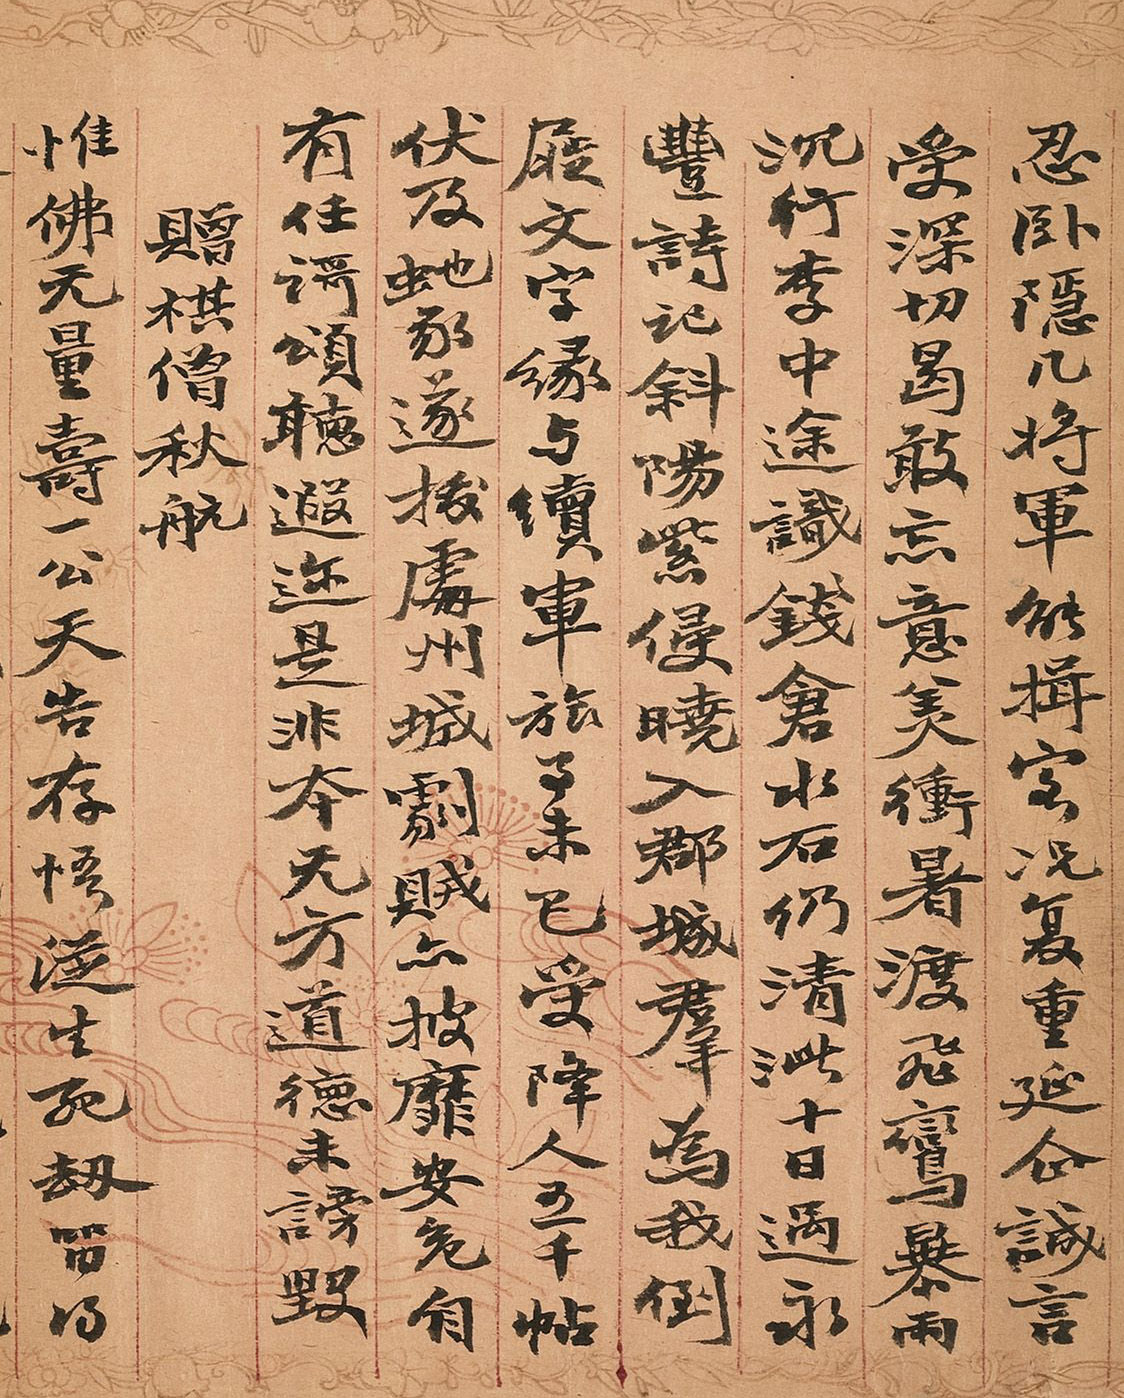 忍卧隱几将軍能揖客况复重延企誠言
受深切曷敢忘意美衝暑渡飛鸞暴雨
沉行李中途識錢倉水石仍清泚十日過永
豐詩記斜陽紫侵曉入郡城羣為我倒
屣文字缘与續軍旅事未已受降人五千帖
伏及虵豕遂拔處州城劇賊亦披靡安危自
有任謌頌聴遐迩是非本无方道德未謗毀
贈棋僧秋航
惟佛无量壽一公天告存悟從生死劫留得